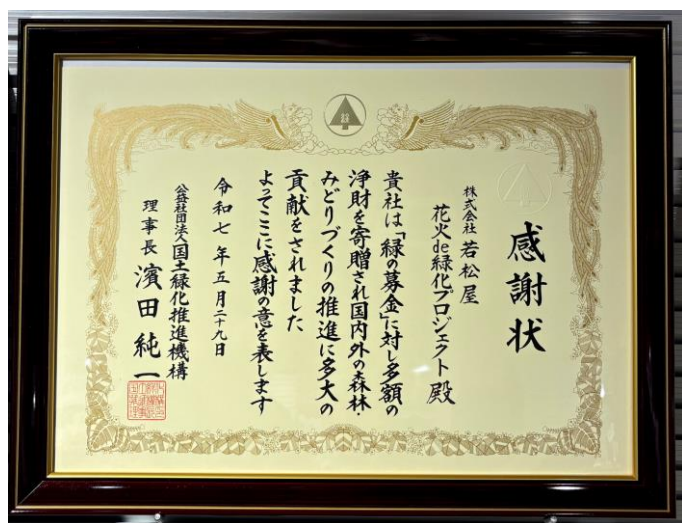 感謝状
株式会社 若松屋
花火de緑化プロジェクト 殿
貴社は「緑の募金」に対し多額の
浄財を寄贈され国内外の森林・
みどりづくりの推進に多大の
貢献をされました
よってここに感謝の意を表します
令和七年五月二十九日
公益社団法人国土緑化推進機構
理事長 濱田純一